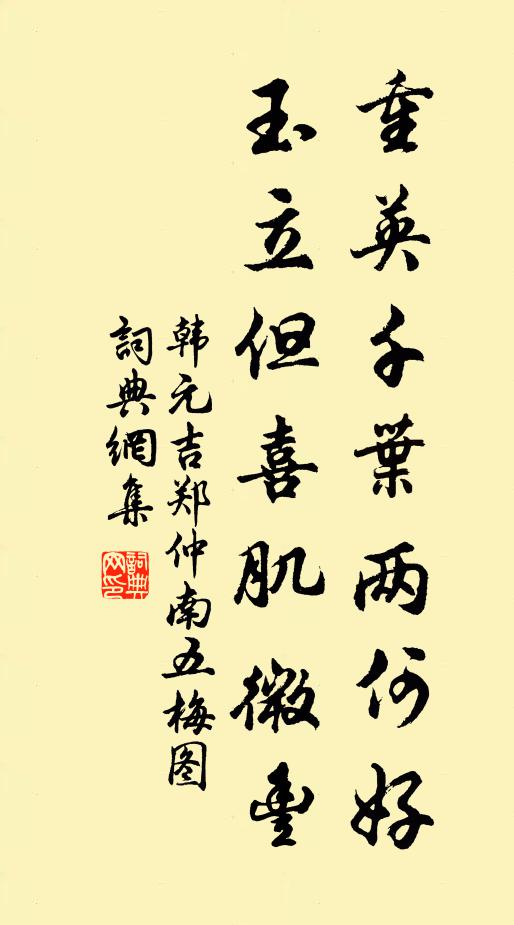 重英千葉两何好
玉立但喜肌微豊
韩元吉郑仲南五梅图
詞典網集
詞典网印